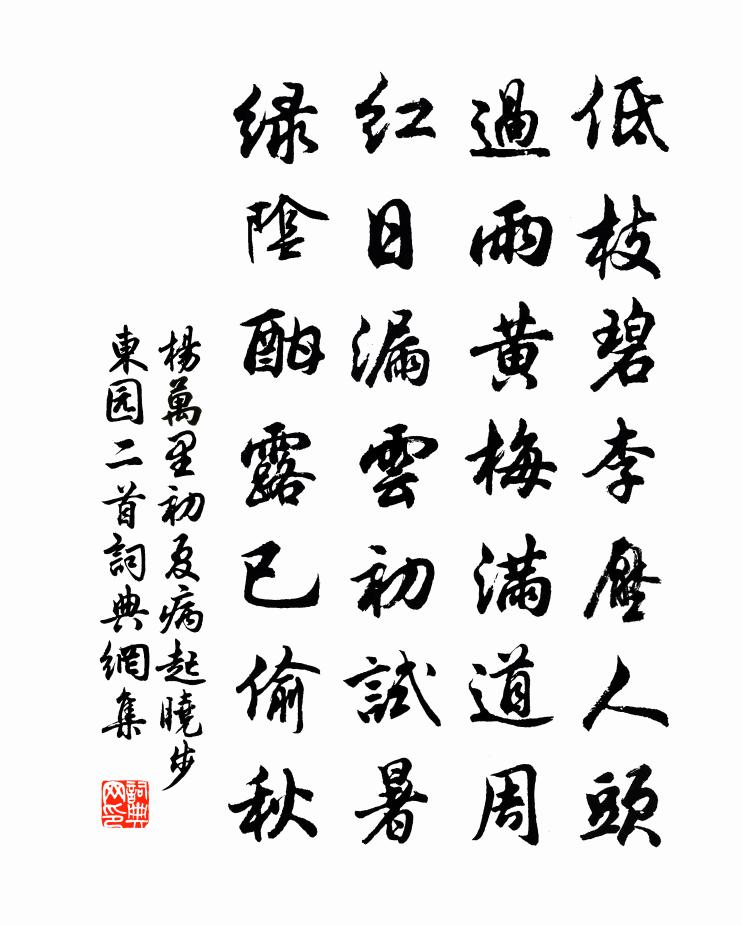 低枝碧李壓人頭
過雨黄梅滿道周
紅日漏雲初試暑
緑陰酣露已偷秋
楊萬里初夏病起曉步
東园二首詞典網集
詞典网印